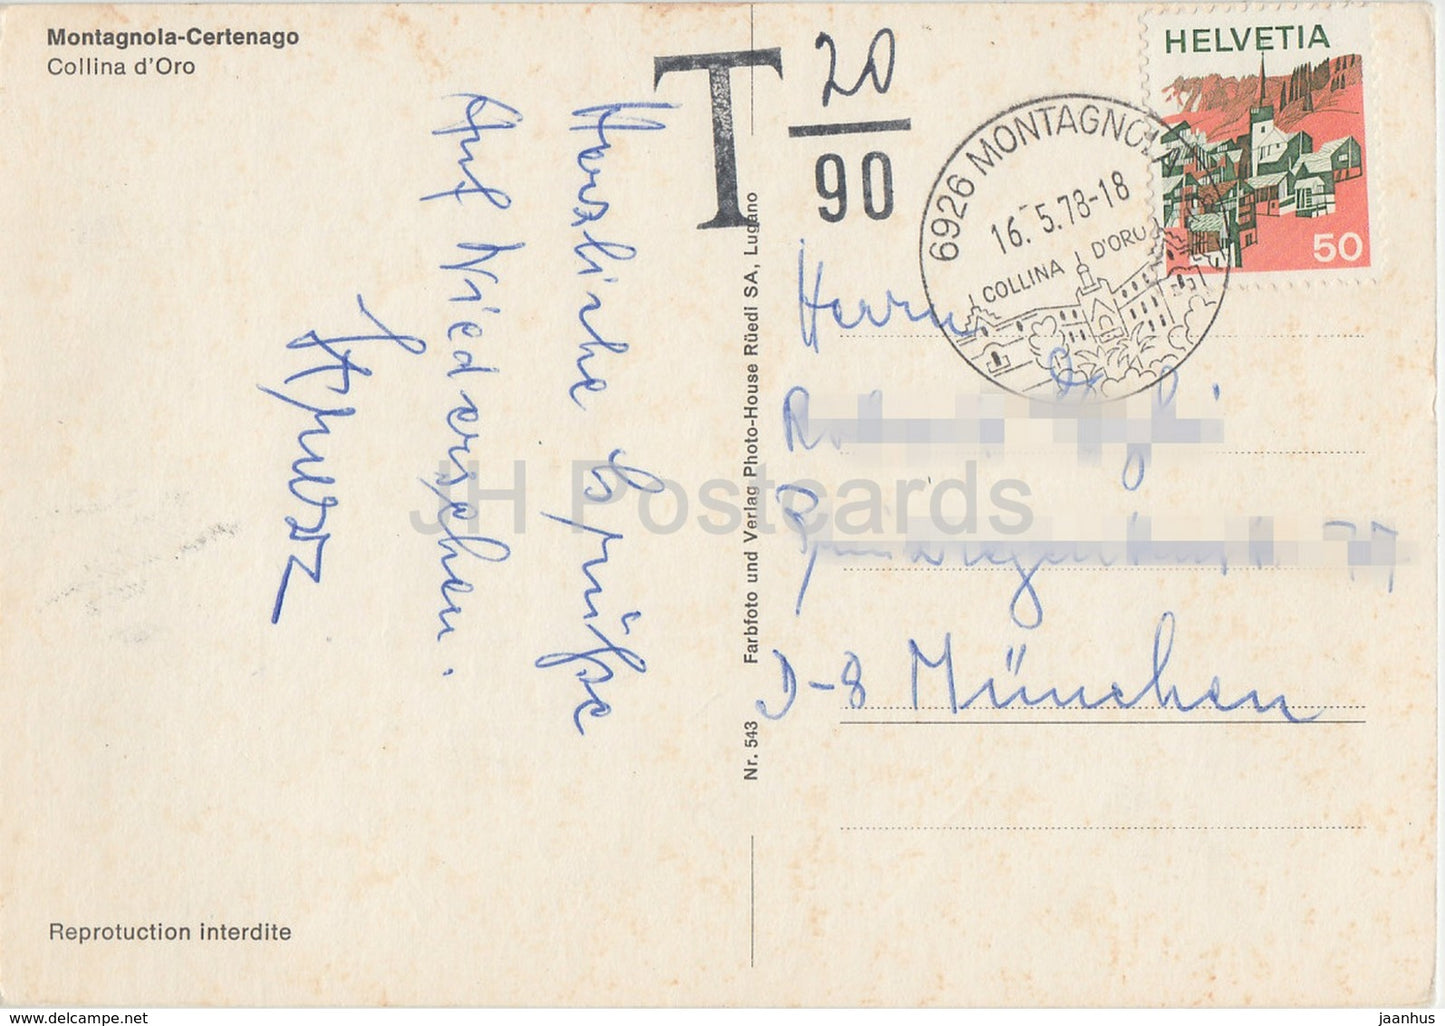 Montagnola-Certenago
Collina d'Oro
T 20
90
HELVETIA
50
6926 MONTAGNOLA
16.-5.78-18
COLLINA D'ORO
Herzliche Grüße
Auf Niederschen.
Herrn
77
D-8 München
Nr. 543 Farbfoto und Verlag Photo-House Rüedi SA, Lugano
JH Postcards
Reprotuction interdite
www.delcampe.net
jaanhus